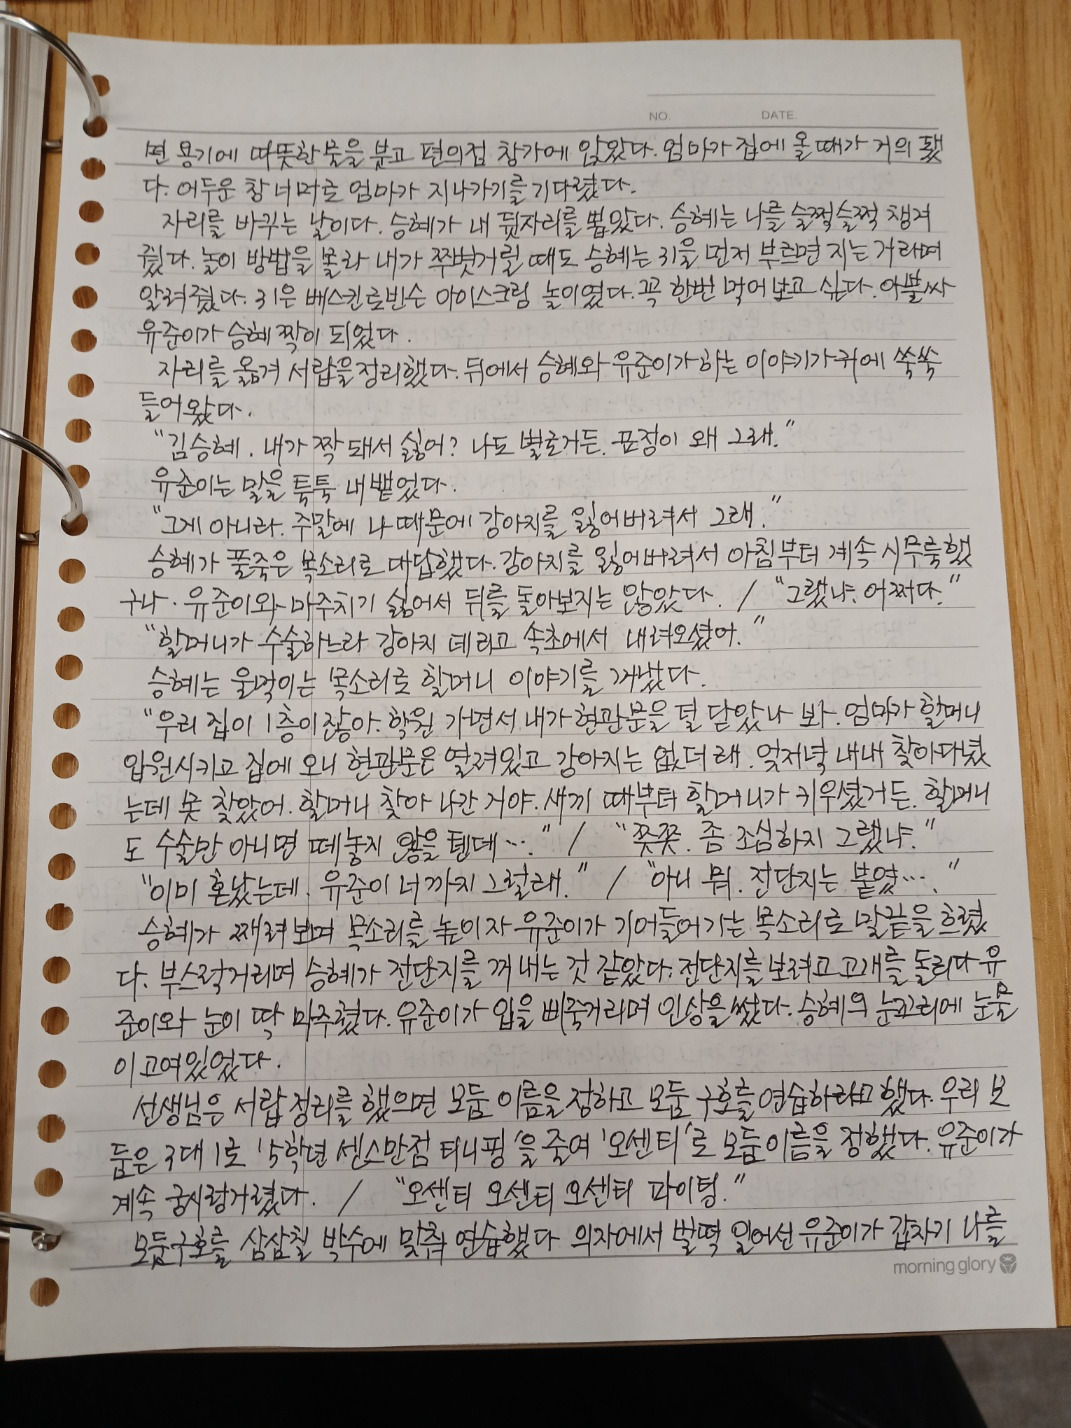 NO. DATE.
면 용기에 따뜻한 물을 붓고 편의점 창가에 앉았다. 엄마가 집에 올 때가 거의 됐
다. 어두운 창 너머로 엄마가 지나가기를 기다렸다.
자리를 바꾸는 날이다. 승혜가 내 뒷자리를 뽑았다. 승혜는 나를 슬쩍슬쩍 챙겨
줬다. 놀이 방법을 몰라 내가 쭈뼛거릴 때도 승혜는 31을 먼저 부르면 지는 거라며
알려줬다. 31은 베스킨로빈슨 아이스크림 놀이였다. 꼭 한번 먹어 보고 싶다. 아뿔싸
유준이가 승혜 짝이 되었다.
자리를 옮겨 서랍을 정리했다. 뒤에서 승혜와 유준이가 하는 이야기가 귀에 쏙쏙
들어왔다.
"김승혜. 내가 짝 돼서 싫어? 나도 별로거든. 표정이 왜 그래."
유준이는 말을 툭툭 내뱉었다.
"그게 아니라. 주말에 나 때문에 강아지를 잃어버려서 그래."
승혜가 풀죽은 목소리로 대답했다. 강아지를 잃어버려서 아침부터 계속 시무룩했
구나. 유준이와 마주치기 싫어서 뒤를 돌아보지는 않았다. / "그랬냐. 어쩌다."
"할머니가 수술하느라 강아지 데리고 속초에서 내려오셨어."
승혜는 울먹이는 목소리로 할머니 이야기를 꺼냈다.
"우리 집이 1층이잖아. 학원 가면서 내가 현관문을 덜 닫았나 봐. 엄마가 할머니
입원시키고 집에 오니 현관문은 열려있고 강아지는 없더래. 엊저녁 내내 찾아다녔
는데 못 찾았어. 할머니 찾아 나간 거야. 새끼 때부터 할머니가 키우셨거든. 할머니
도 수술만 아니면 떼놓지 않을 텐데…." / "쯧쯧. 좀 조심하지 그랬냐."
"이미 혼났는데. 유준이 너까지 그럴래." / "아니 뭐. 전단지는 붙였…."
승혜가 째려보며 목소리를 높이자 유준이가 기어들어가는 목소리로 말끝을 흐렸
다. 부스럭거리며 승혜가 전단지를 꺼내는 것 같았다. 전단지를 보려고 고개를 돌리다 유
준이와 눈이 딱 마주쳤다. 유준이가 입을 삐죽거리며 인상을 썼다. 승혜의 눈꼬리에 눈물
이 고여있었다.
선생님은 서랍 정리를 했으면 모둠 이름을 정하고 모둠 구호를 연습하라고 했다. 우리 모
둠은 3대 1로 '5학년 센스만점 티니핑'을 줄여 '오센티'로 모둠 이름을 정했다. 유준이가
계속 궁시렁거렸다. / "오센티 오센티 오센티 파이팅."
모둠구호를 삼삼칠 박수에 맞춰 연습했다. 의자에서 벌떡 일어선 유준이가 갑자기 나를
morning glory